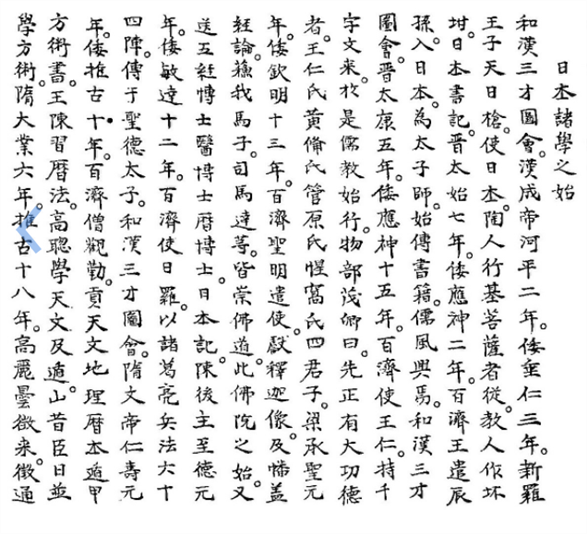 日本諸學之始
和漢三才圖會。漢成帝河平二年。倭垂仁三年。新羅
王子天日槍。使日本。陶人行基菩薩者從。教人作坏
坩。日本書記。晋太始七年。倭應神二年。百濟王遣辰
孫入日本。為太子師。始傳書籍。儒風興焉。和漢三才
圖會。晋太康五年。倭應神十五年。百濟使王仁。持千
字文来。於是儒教始行。物部茂卿曰。先正有大功德
者。王仁氏黃備氏管原氏惺窩氏四君子。梁承聖元
年。倭欽明十三年。百濟聖明遣使。獻釋迦像。及幡盖
経論。蘓我馬子。司馬達等。皆崇佛道。此佛院之始。又
送五経博士醫博士曆博士。日本記。陳後主至德元
年。倭敏達十二年。百濟使日羅。以諸葛亮兵法六十
四陣。傳于聖德太子。和漢三才圖會。隋文帝仁壽元
年。倭推古十年。百濟僧觀勤。貢天文地理曆本遁甲
方術書。王陳習曆法。高聡學天文及遁。山昔臣日並
學方術。隋大業六年。推古十八年。高麗曇徵来。徵通